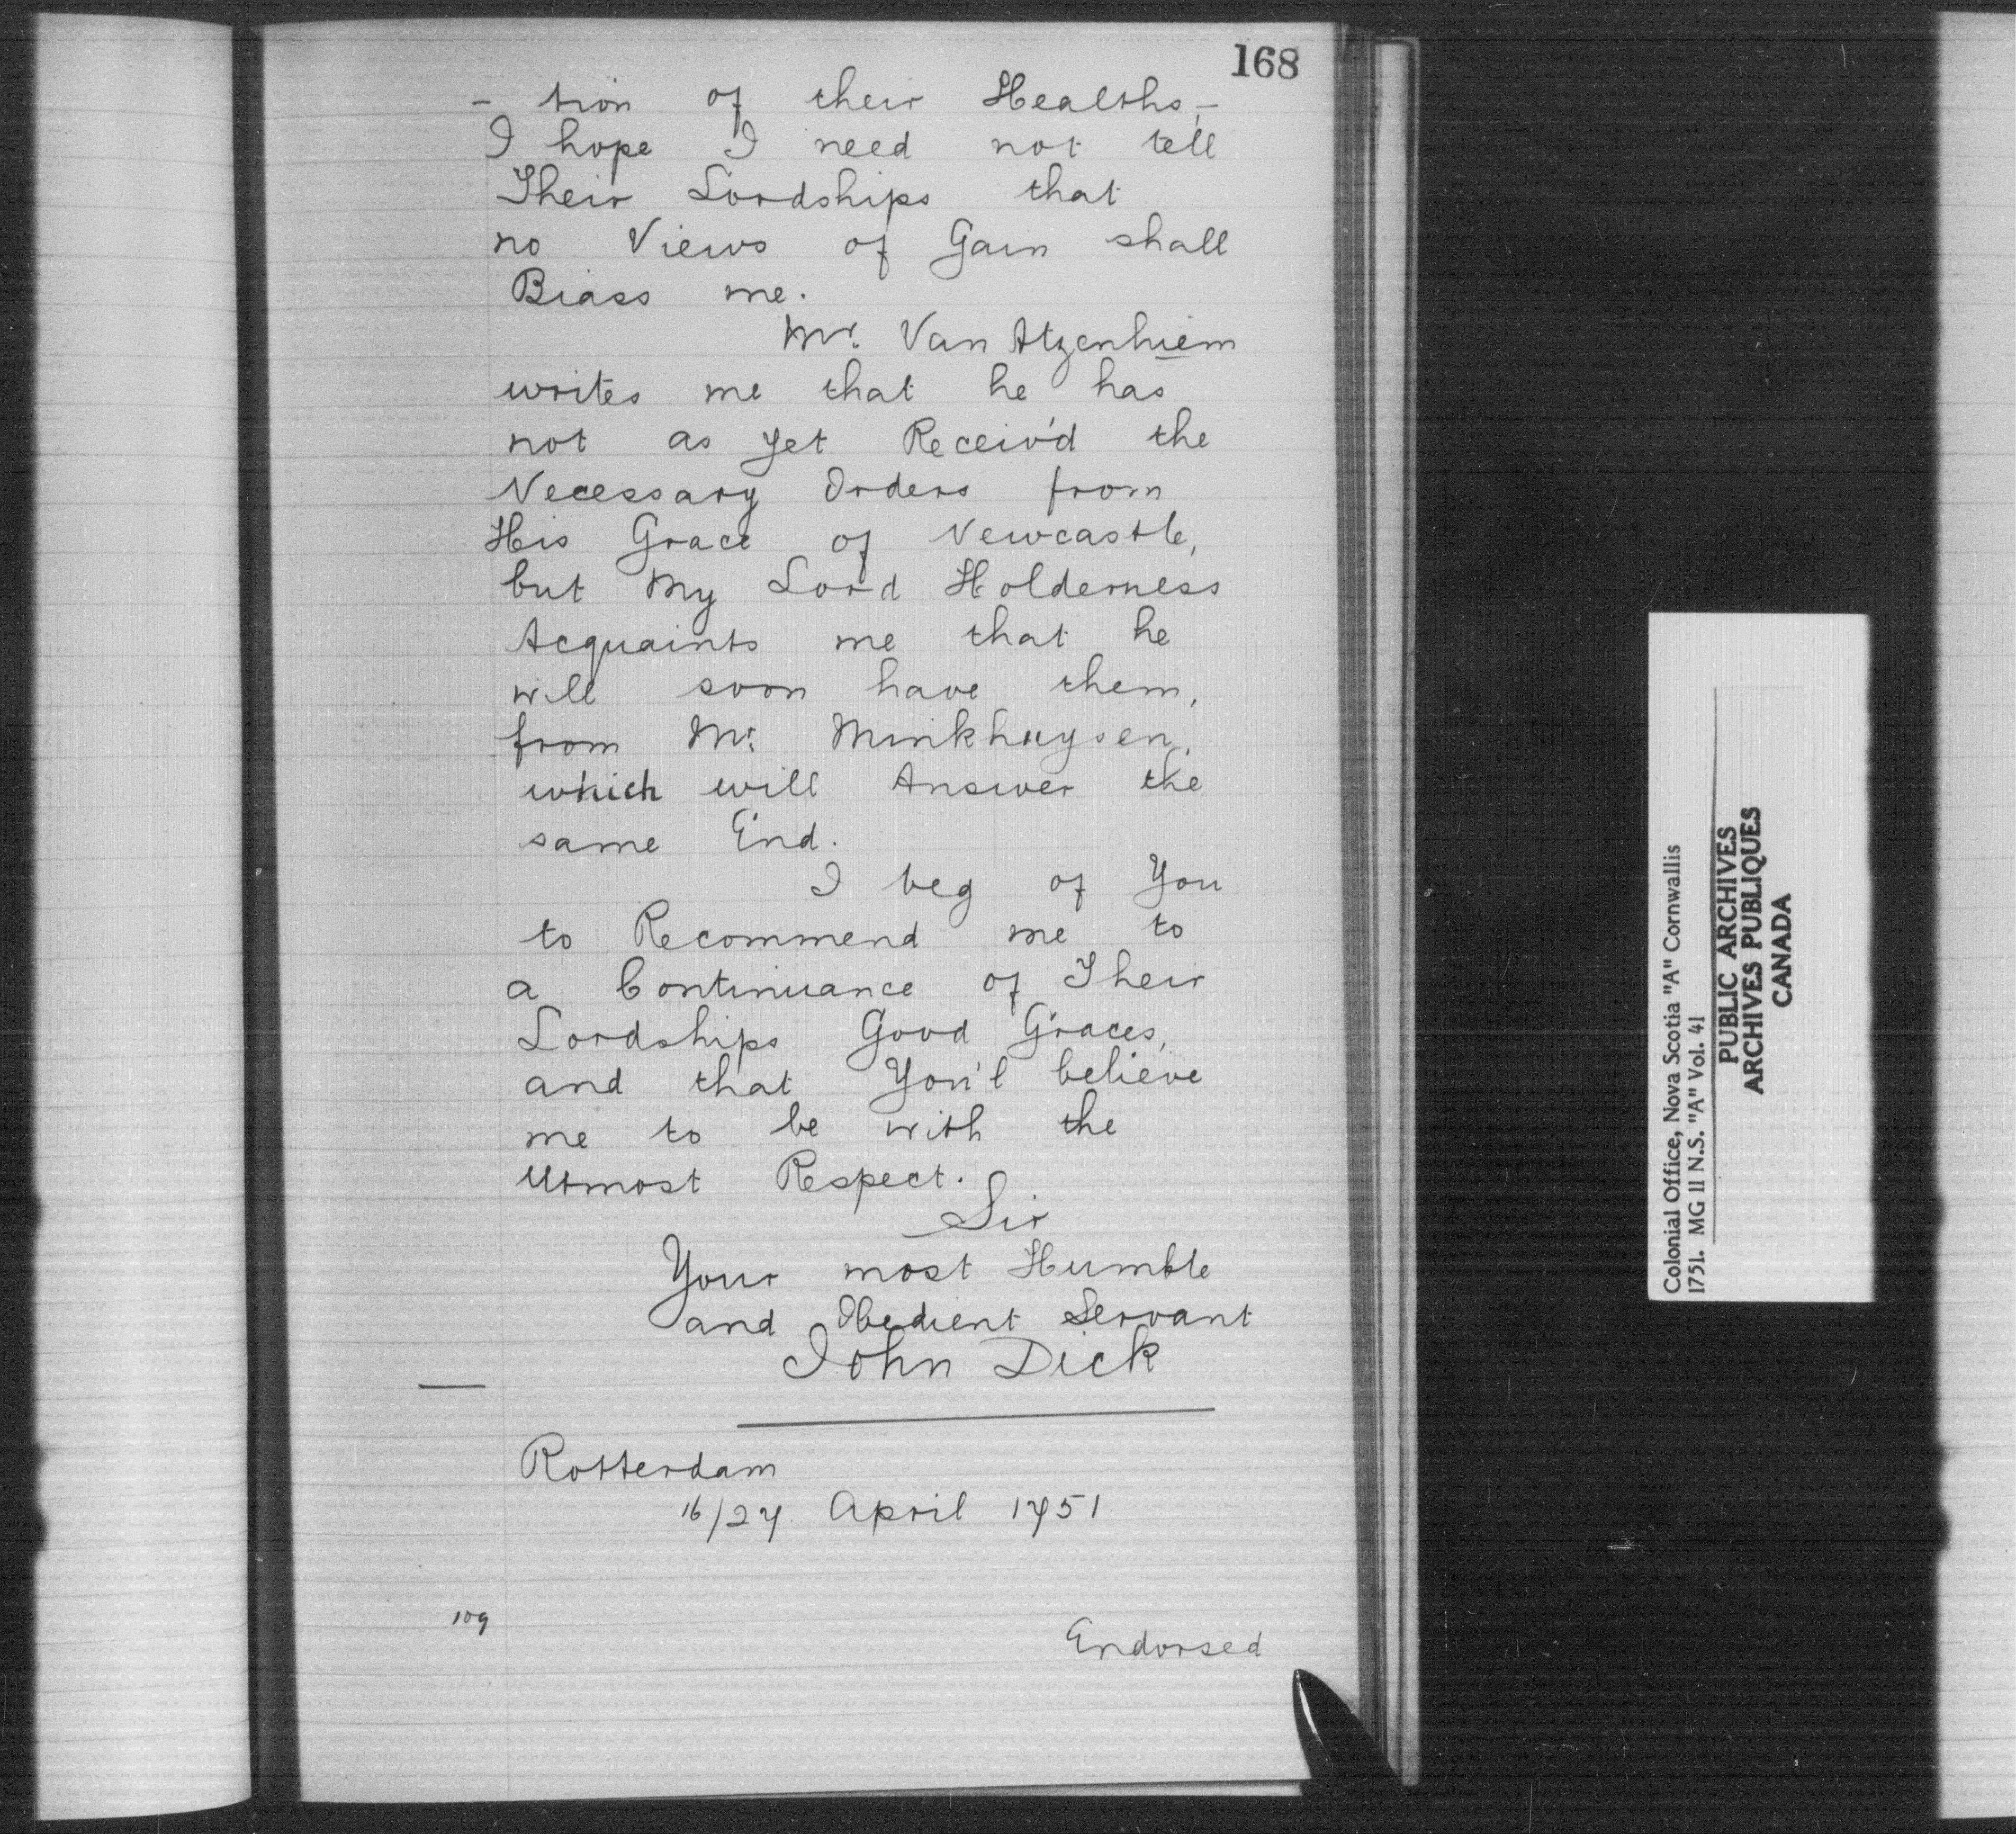 168
- tion of their Healths, -
I hope I need not tell
Their Lordships that
no Views of Gain shall
Biass me.
Mr. Van Atzenhiem
writes me that he has
not as yet Receiv'd the
Necessary Orders from
His Grace of Newcastle,
but My Lord Holderness
Acquaints me that he
will soon have them,
from Mr. Minkhuysen,
which will Answer the
same End.
I beg of You
to Recommend me to
a Continuance of Their
Lordships Good Graces,
and that You'l believe
me to be with the
Utmost Respect.
Sir
Your most Humble
and Obedient Servant
John Dick
Rotterdam
16/27 April 1751
109
Endorsed
Colonial Office, Nova Scotia "A" Cornwallis
1751. MG 11 N.S. "A" Vol. 41
PUBLIC ARCHIVES
ARCHIVES PUBLIQUES
CANADA